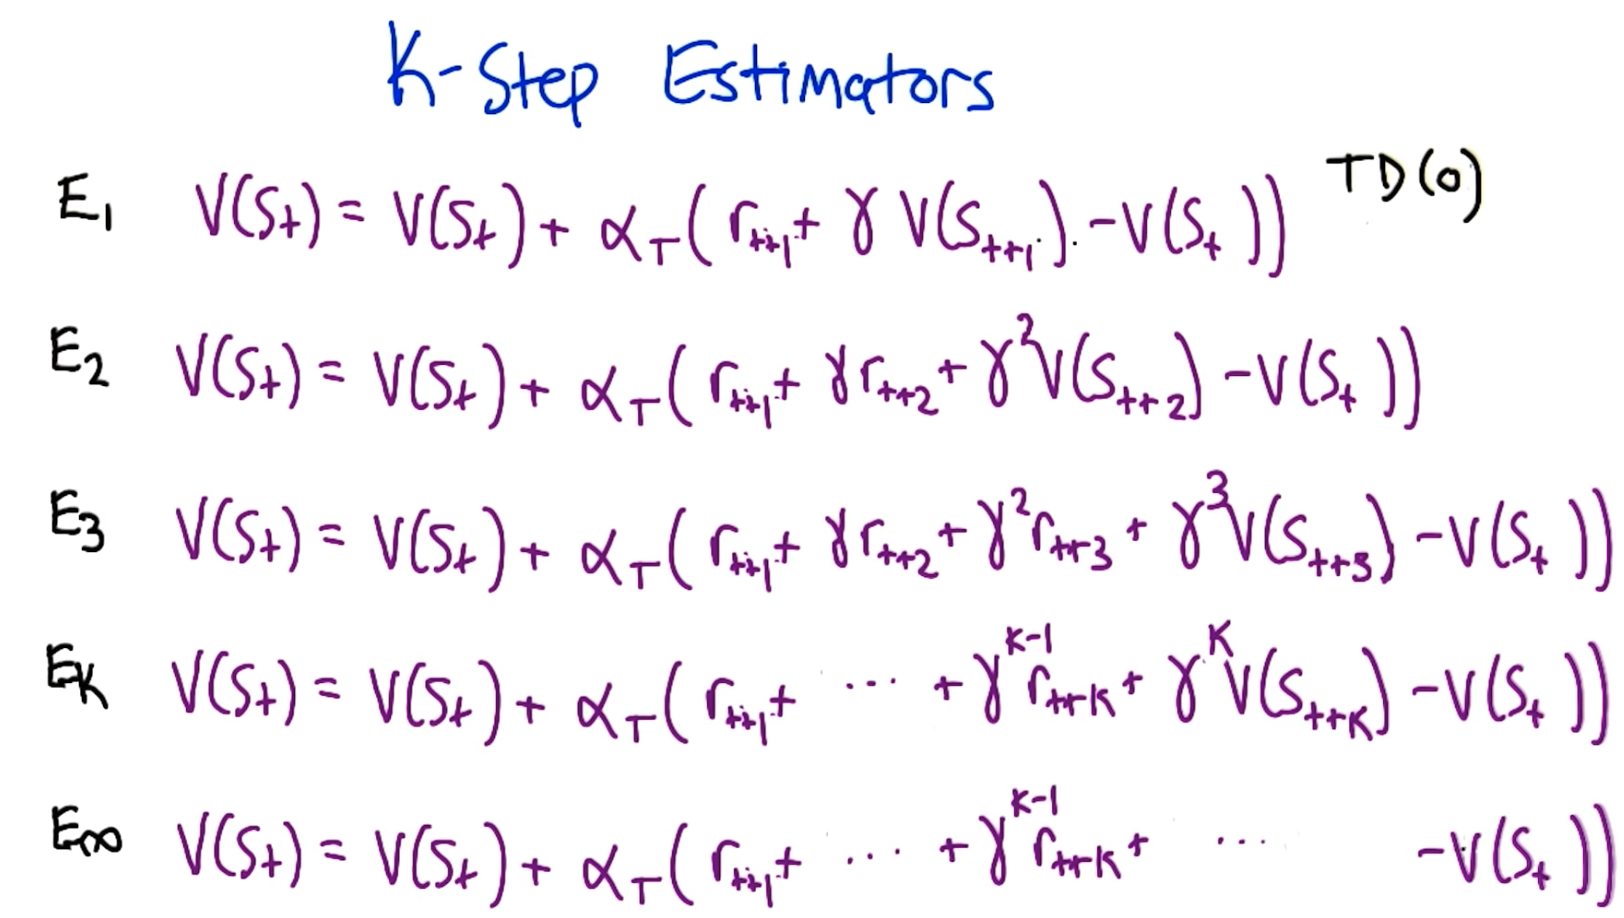 K-Step Estimators
E₁ V(Sₜ) = V(Sₜ) + α_T(rₜ₊₁ + γ V(Sₜ₊₁) - V(Sₜ)) TD(0)
E₂ V(Sₜ) = V(Sₜ) + α_T(rₜ₊₁ + γrₜ₊₂ + γ²V(Sₜ₊₂) - V(Sₜ))
E₃ V(Sₜ) = V(Sₜ) + α_T(rₜ₊₁ + γrₜ₊₂ + γ²rₜ₊₃ + γ³V(Sₜ₊₃) - V(Sₜ))
E_K V(Sₜ) = V(Sₜ) + α_T(rₜ₊₁ + ... + γ^{K-1}r_{t+K} + γ^K V(S_{t+K}) - V(Sₜ))
E_∞ V(Sₜ) = V(Sₜ) + α_T(rₜ₊₁ + ... + γ^{K-1}r_{t+K} + ... - V(Sₜ))